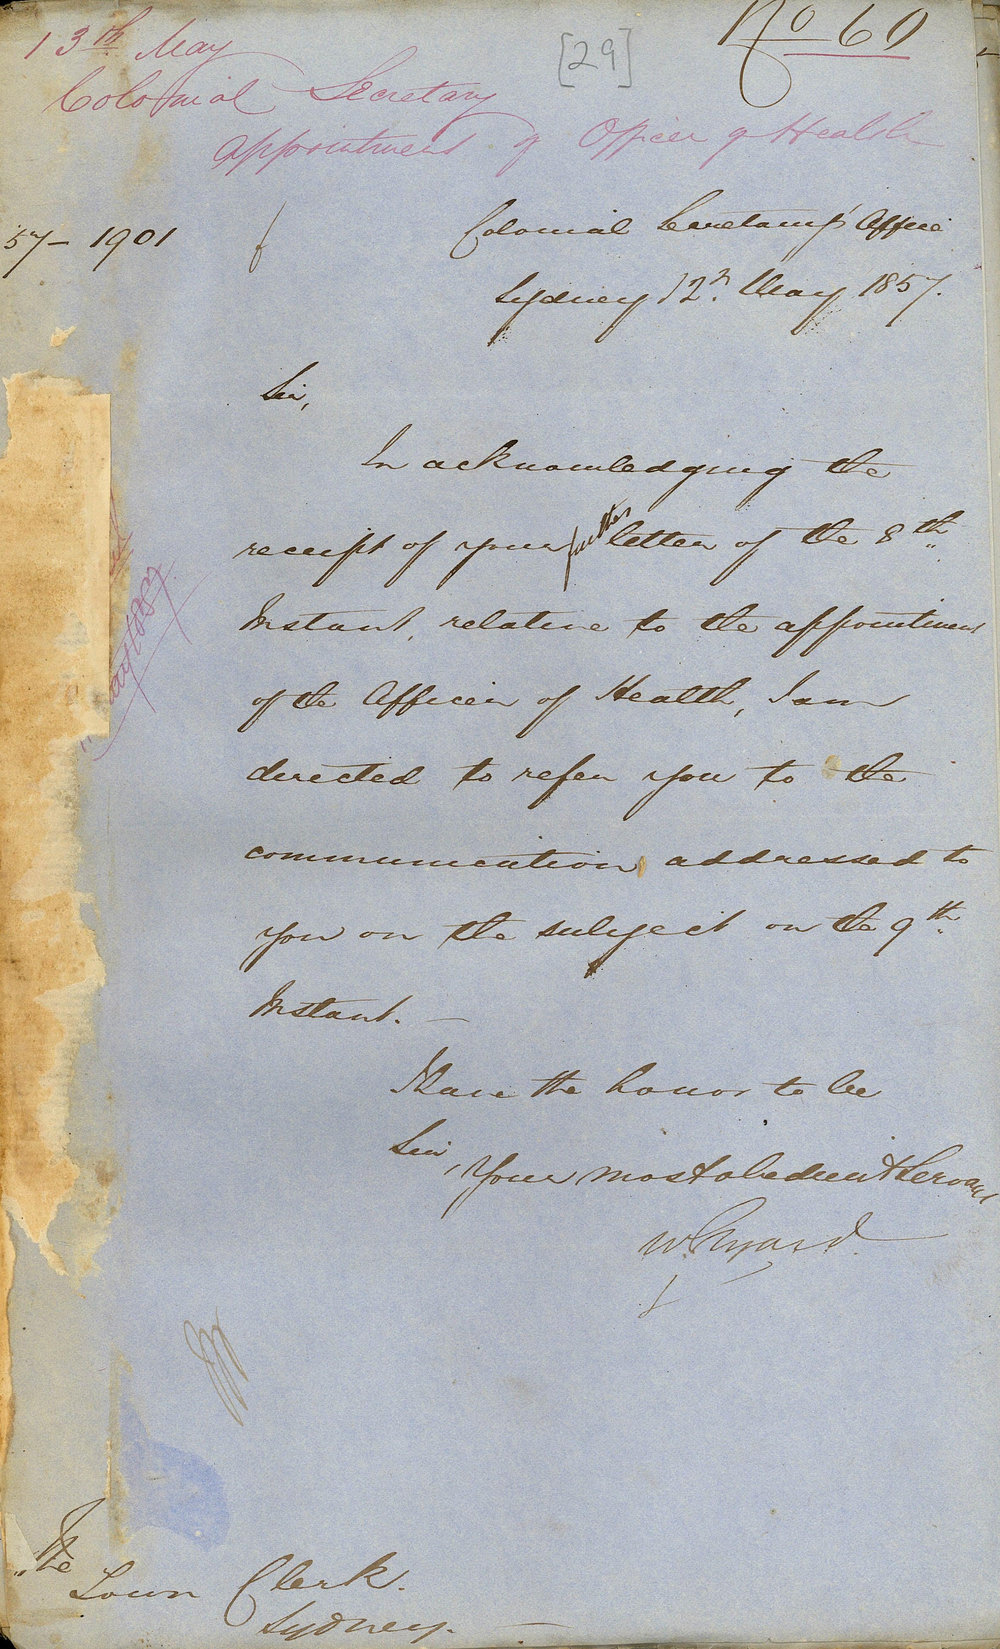 13th May
[29]
No 60
Colonial Secretary
Appointment of Officer of Health
57-1901
Colonial Secretary's Office
Sydney 12th May 1857.
Sir,
In acknowledging the
receipt of your further letter of the 8th
Instant, relative to the appointment
of the Officer of Health, I am
directed to refer you to the
communication addressed to
you on the subject on the 9th
Instant. —
I have the honor to be
Sir,
Your most obedient Servant
W Elyard
The
Town Clerk.
Sydney. —